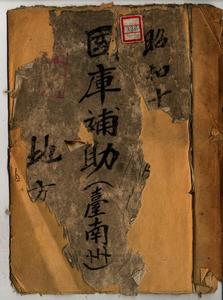 昭和十
國庫補助(臺南州)
地方